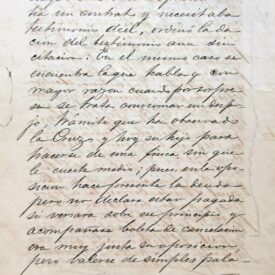 tia un contrato y necesitaba
testimonio de él, ordenó la da
cion del testimonio aun sin
citacion. En el mismo caso se
encuentra la que habla y con
mayor razon cuando por sorpre
sa se trata consumar un despo
jo, trámite que ha observado
la Cruz y hoy su hijo para
hacerse de una finca sin que
le cueste medio; pues en la opo
sicion hace presente la deuda
pero no declara estar pagada
si vocara sobre un principio y
acompañase boleta de cancelacion
era muy justa su oposicion,
pero valerse de simples pala-